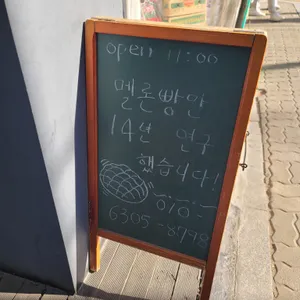 open 11:00
멜론빵만
14년 연구
했습니다!
010-
6305-8948